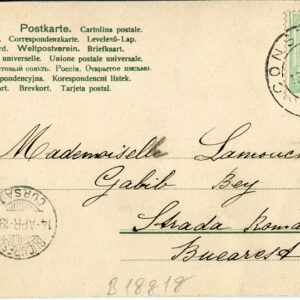 Postkarte. Cartolina postale.
Correspondenzkarte. Levelező-Lap.
Weltpostverein. Briefkaart.
universelle. Unione postale universale.
союзъ. Россія. Открытое письмо.
Korespondenční lístek.
ort. Brevkort. Tarjeta postal.
CONS
Mademoiselle Lamouc
Gabib Bey
Strada Roma
Bucarest
CURSA I
14-APR-19
BUCURES
B18818